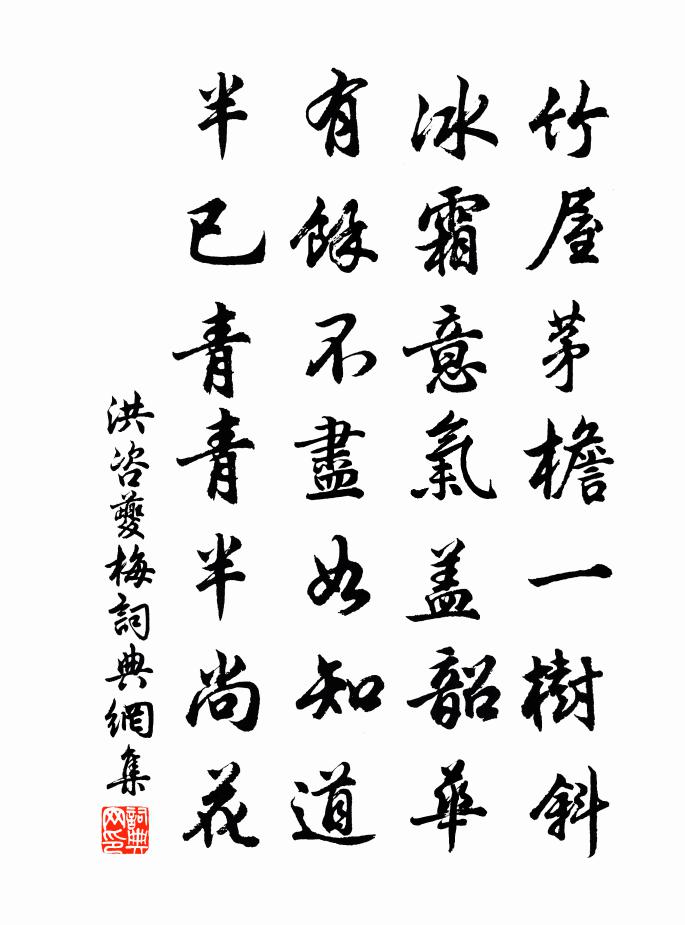 竹屋茅檐一樹斜
冰霜意氣蓋韶華
有餘不盡如知道
半已青青半尚花
洪咨夔梅詞典網集
詞典网印